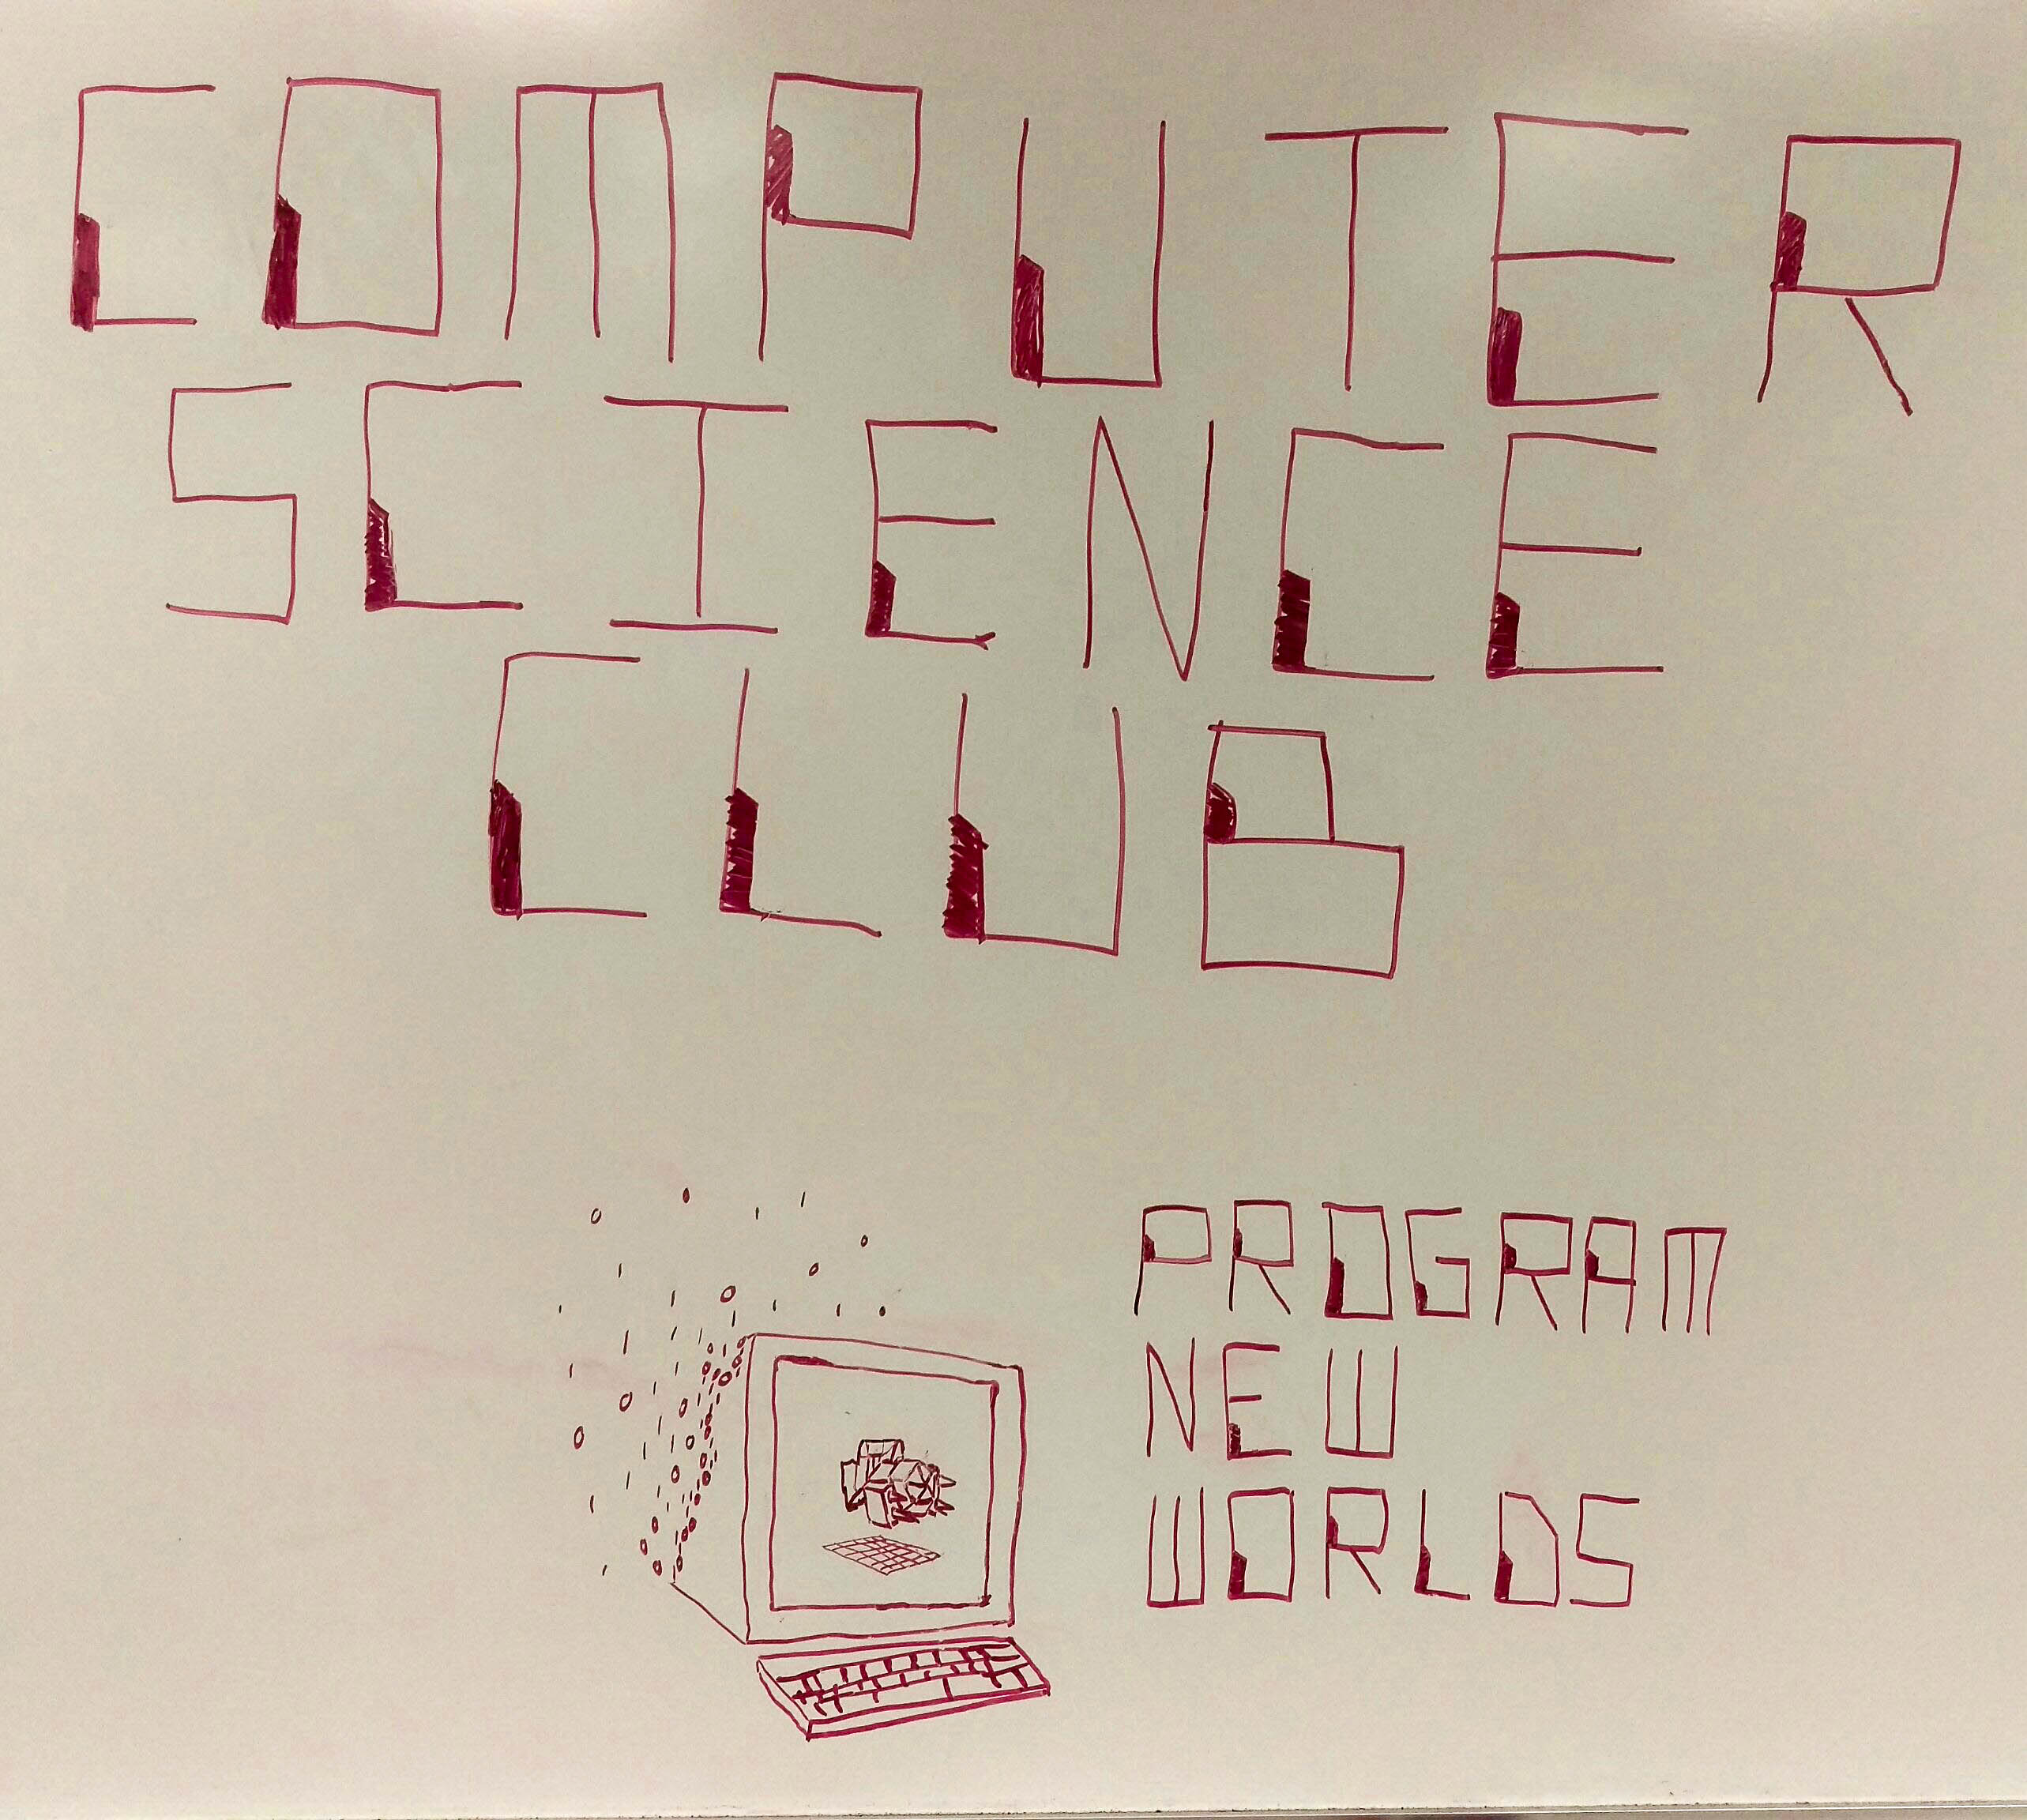 COMPUTER
SCIENCE
CLUB
PROGRAM
NEW
WORLDS